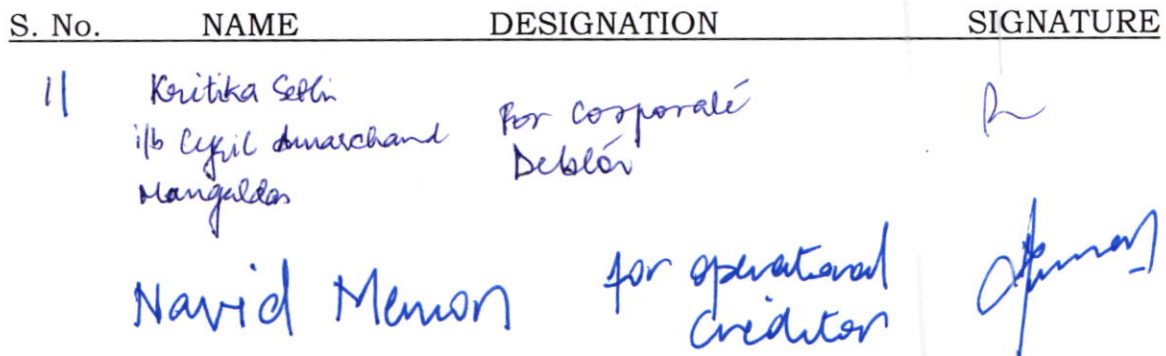 S. No. NAME DESIGNATION SIGNATURE
1) Kritika Sethi
i/b Cyril Amarchand For Corporate
Mangaldas Debtor
Navid Memon for operational
creditor